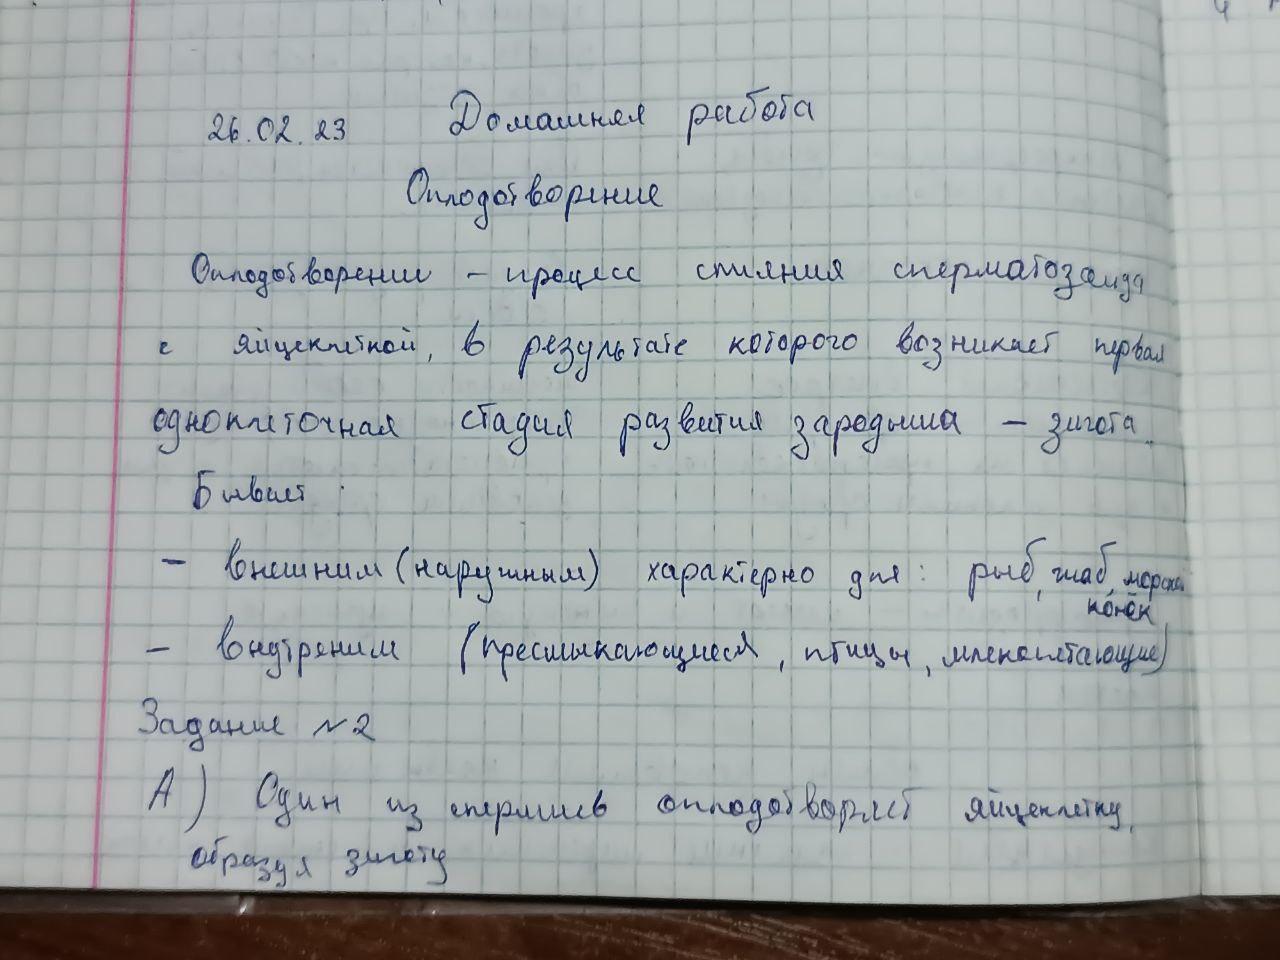 26.02.23 Домашняя работа
Оплодотворение
Оплодотворении – процесс слияния сперматозоида
с яйцеклеткой, в результате которого возникает первая
одноклеточная стадия развития зародыша – зигота.
Бывает:
– внешним (наружным) характерно для: рыб, жаб, морской
конёк
– внутреним (пресмыкающиеся, птицы, млекопитающие)
Задание №2
А) Один из спермиев оплодотворяет яйцеклетку,
образуя зиготу